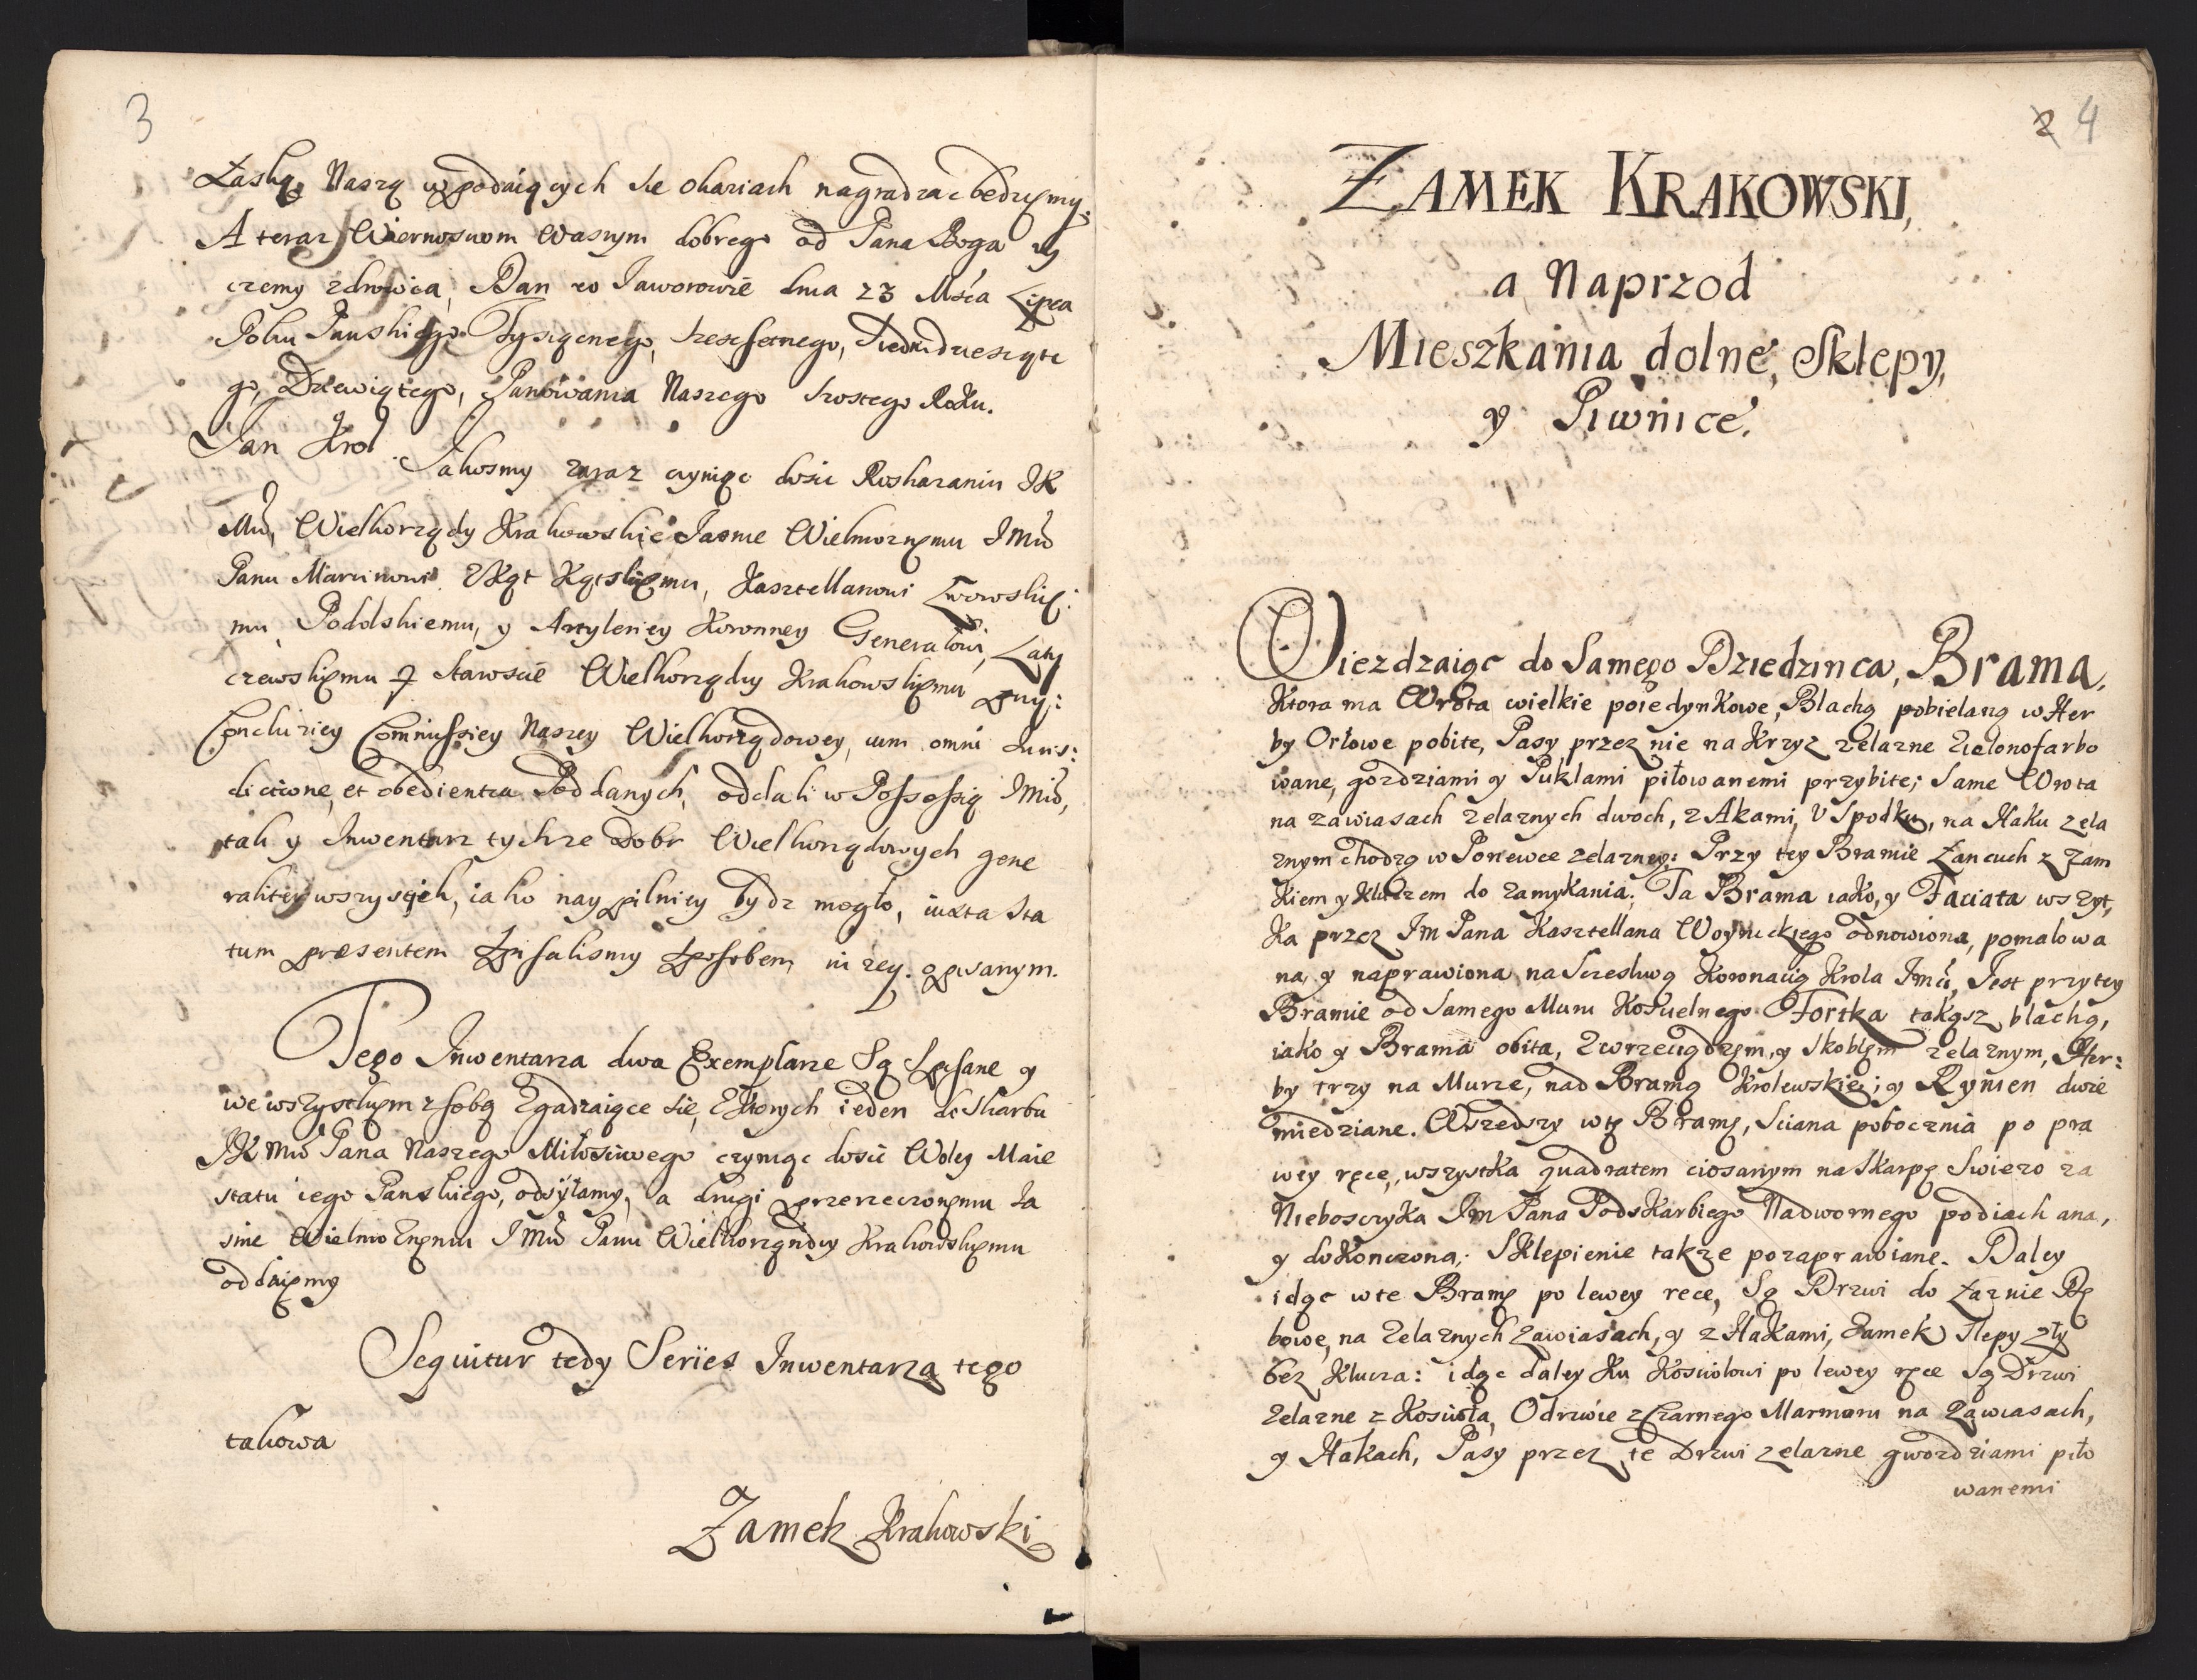 3
Łaską Naszą w podaiących sie okaziach nagradzac będziemy.
A teraz Wiernosciom Waszym dobrego od Pana Boga zy
czemy zdrowia, Dan w Jaworowie dnia 23 Mśca Lipca
Roku Panskiego Tysiącnego, szescsetnego, Siedmdziesiąte
go, Dziewiątego, Panowania Naszego szostego Roku.
Jan Krol Jakosmy zaraz czyniąc dosic Roskazaniu JK
Mći, Wielkorządy Krakowskie Jasnie Wielmoznemu JMći
Panu Marcinowi Kątskiemu, Kasztellanowi Lwowskie:
mu Podolskiemu, y Artyleriey Koronney Generałowi, Laty
czewskiemu Staroscie Wielkorządcy Krakowskiemu przy:
Concluziey Commissiey Naszey Wielkorządowey, cum omni Iuris:
dictione, et obedientia Poddanych, oddali w Possessią JMći,
tak y Inwentarz tychze Dobr Wielkorządowych gene
raliter wszystkich, iako naypilniey bydz mogło, iuxta sta
tum præsentem spisalismy sposobem nizey opisanym.
Tego Inwentarza dwa Exemplarze Są Spisane y
we wszystkiem z sobą Zgadzaiące się, Z ktorych ieden do Skarbu
JK Mći Pana Naszego Miłosciwego czyniąc dosic Woley Maie
statu iego Panskiego, odsyłamy, a drugi przerzeczonemu Ja
snie Wielmoznemu JMći Panu Wielkorządcy Krakowskiemu
oddaiemy
Sequitur tedy Series Inwentarza tego
takowa
Zamek Krakowski
2 4
ZAMEK KRAKOWSKI,
a Naprzod
Mieszkania dolne, Sklepy,
y Piwnice.
Wiezdzaiąc do Samego Dziedzinca, Brama,
Ktora ma Wrota wielkie poiedynkowe, Blachą pobielaną w Her
by Orłowe pobite, Pasy przez nie na Krzyz zelazne Zielonofarbo
wane, gozdziami y Puklami piłowanemi przybite; Same Wrota
na zawiasach zelaznych dwoch, z Akami, V Spodku, na Haku zela
znym chodzą w Ponewce zelazney: Przy tey Bramie Łancuch z Zam
kiem y Kluczem do zamykania; Ta Brama iako, y Faciata wszyt,
Ka przez Im Pana Kasztellana Woynickiego odnowiona, pomalowa
na, y naprawiona na Sczesliwą Koronacią Krola Jmći, Jest przy tey
Bramie od Samego Muru Koscielnego Fortka takąsz blachą,
iako y Brama obita, Z wrzeciądzem, y Skoblem zelaznym, Her:
by trzy na Murze, nad Bramą Krolewskie; y Rynien dwie
miedziane. Wszedszy w tę Bramę, Sciana pobocznia po pra
wey ręce, wszystka quadratem ciosanym na Skarpę Swiezo za
Nieboszczyka Im Pana Podskarbiego Nadwornego podiachana,
y dokonczona; Sklepienie takze pozaprawiane. Daley
idąc w te Bramę po lewey rece, Są Drzwi do Łaznie Dę
bowe, na Zelaznych Zawiasach, y z Hakami, Zamek Slepy zły
bez Klucza: idąc daley ku Kosciołowi po lewey ręce Są Drzwi
Zelazne z Kosciola, Odrzwie z Czarnego Marmoru na Zawiasach,
y Hakach, Pasy przez te Drzwi zelazne gwozdziami piło
wanemi